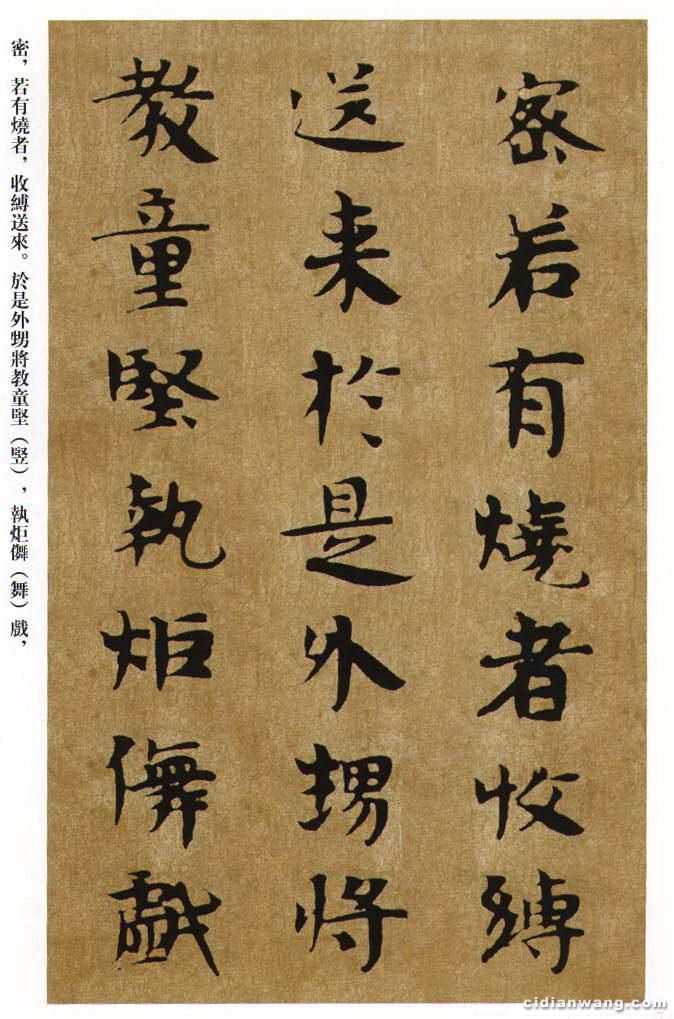 密若有燒者收縛
送来於是外甥将
教童堅執炬儛戲
密，若有燒者，收縛送來。於是外甥將教童堅（竪），執炬儛（舞）戲，
cidianwang.com